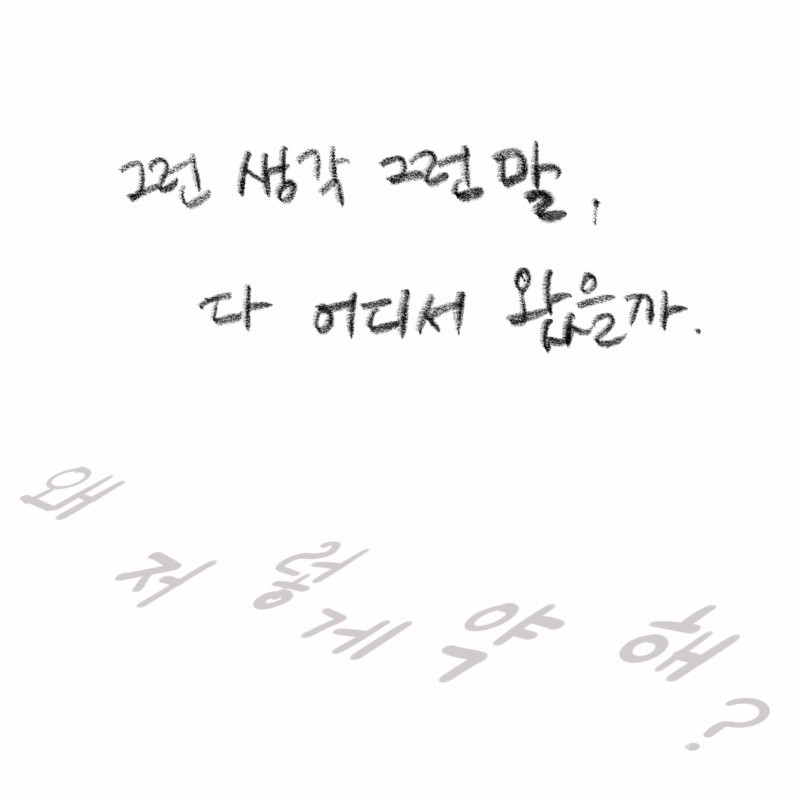 그런 생각 그런 말,
다 어디서 왔을까.
왜 저렇게 약해?